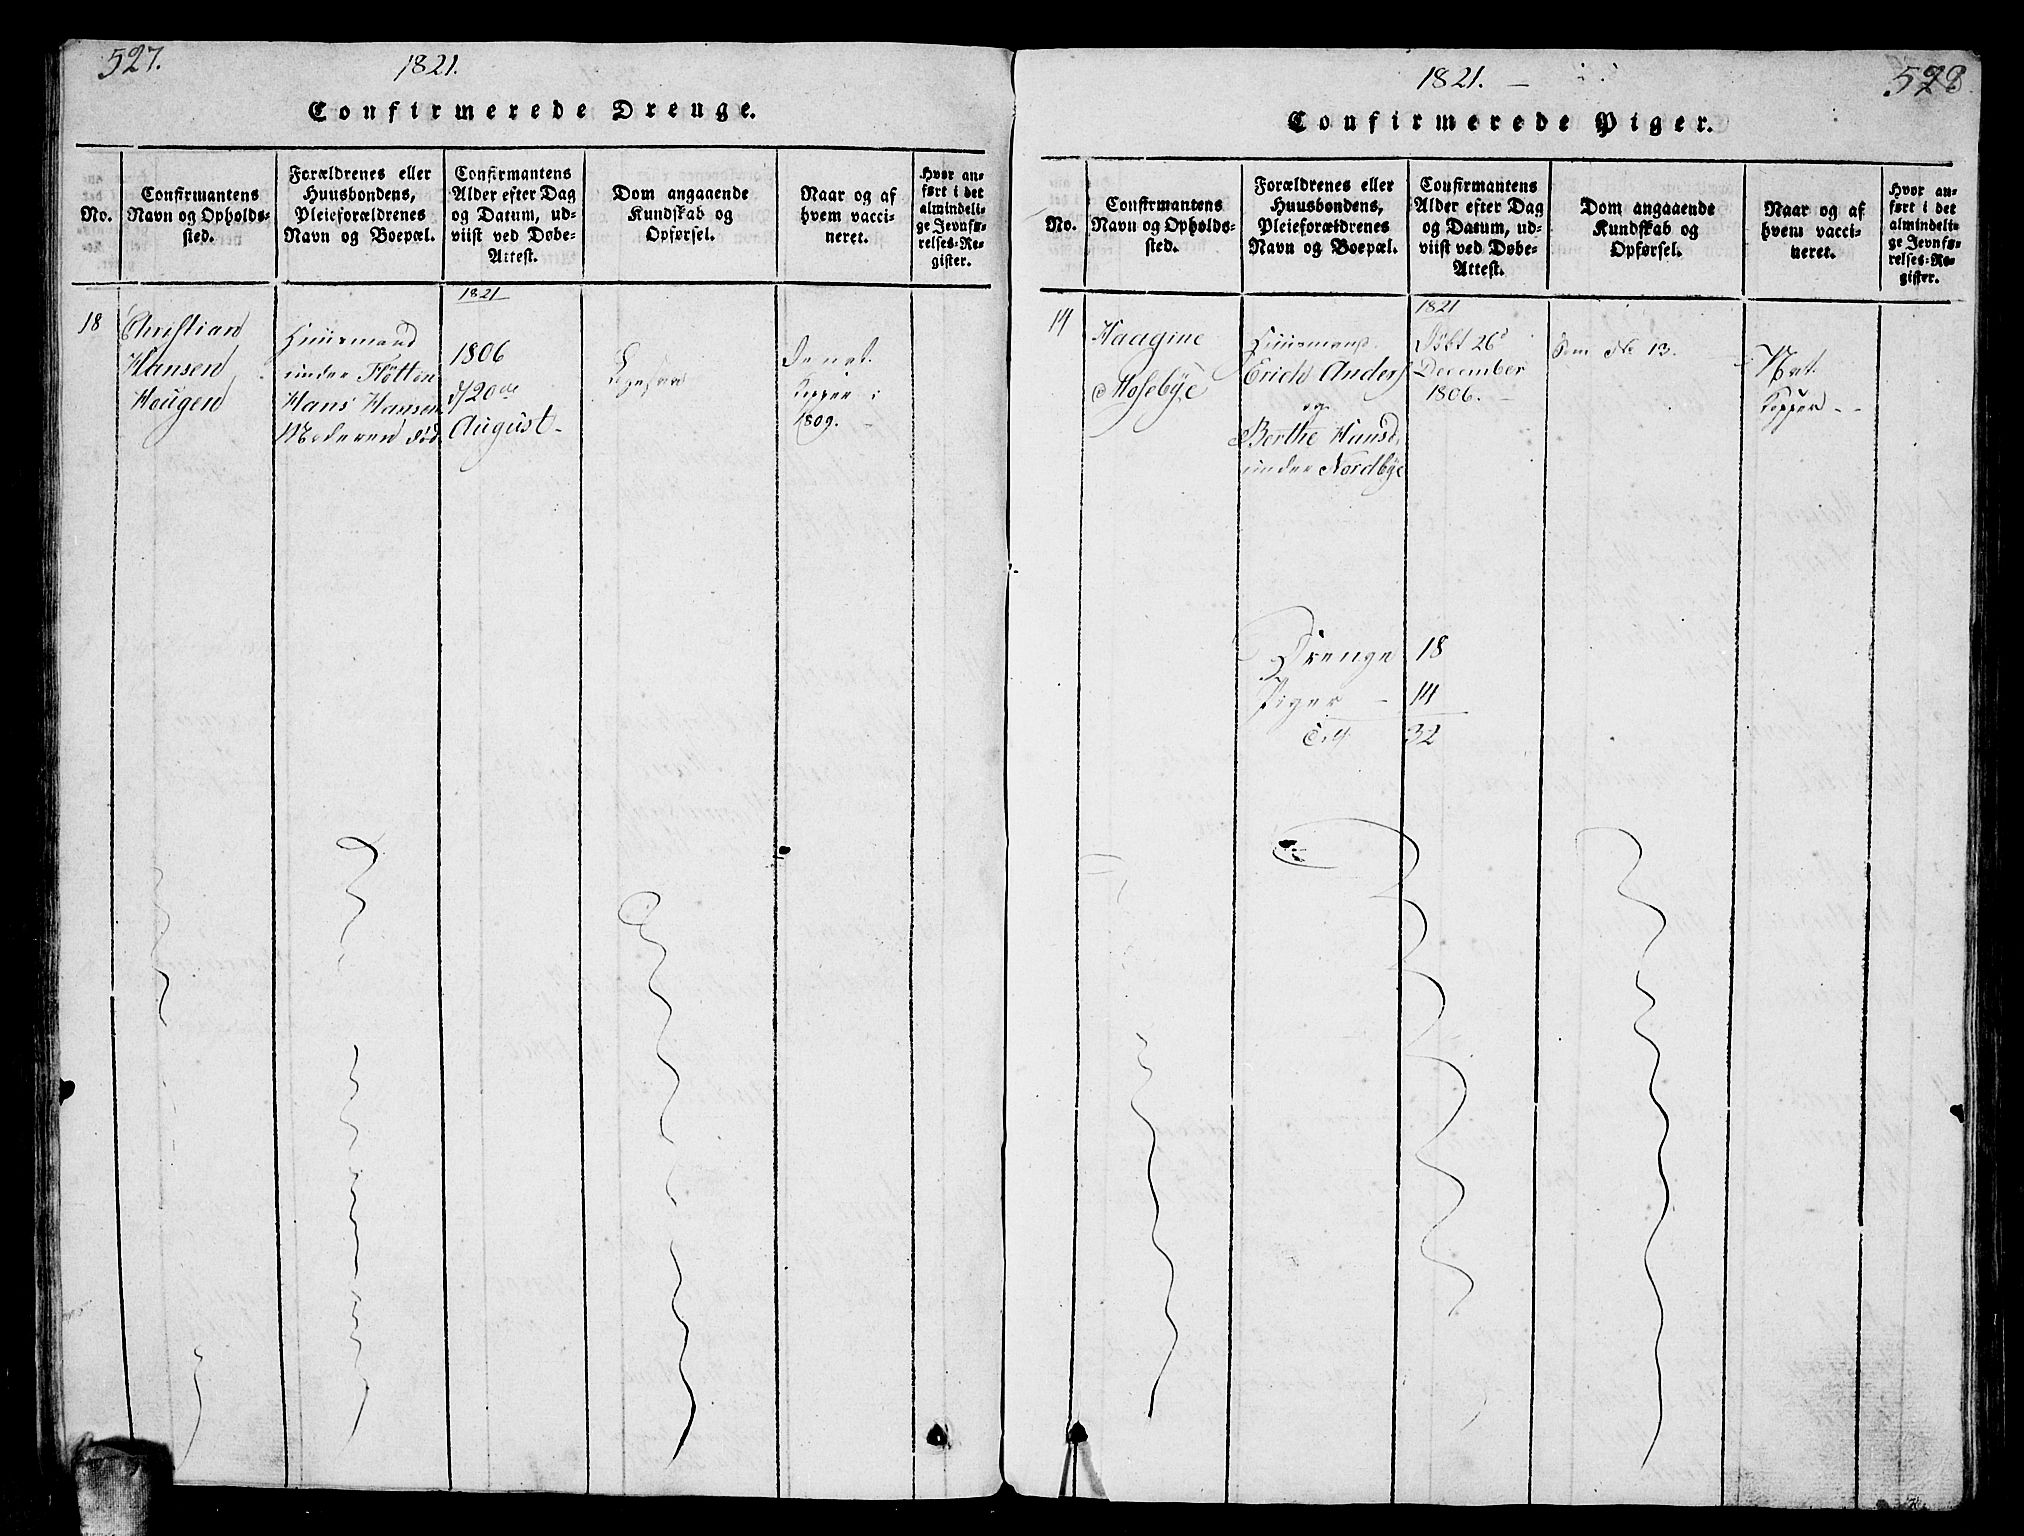 527.
1821.
Confirmerede Drenge.
No.
Confirmantens
Navn og Opholds-
sted.
Forældrenes eller
Huusbondens,
Pleieforældrenes
Navn og Boepæl.
Confirmantens
Alder efter Dag
og Datum, ud-
viist ved Døbe-
Attest.
Dom angaaende
Kundskab og
Opførsel.
Naar og af
hvem vacci-
neret.
Hvor an-
ført i det
almindeli-
ge Jevnfø-
relses-Re-
gister.
18
Christian
Hansen
Hougen
Huusmand
under Fløtten
Hans Hansen
Moderen død.
1821
1806
d/20de
August -
De nat.
Kopper i
1809. -
1821. -
528
Confirmerede Piger.
No.
Confirmantens
Navn og Opholds-
sted.
Forældrenes eller
Huusbondens,
Pleieforældrenes
Navn og Boepæl.
Confirmantens
Alder efter Dag
og Datum, ud-
viist ved Døbe-
Attest.
Dom angaaende
Kundskab og
Opførsel.
Naar og af
hvem vacci-
neret.
Hvor an-
ført i det
almindeli-
ge Jevnfø-
relses-Re-
gister.
14
Haagine
Mosebye
Huusmand
Erich Anders
og
Berthe Hansd.
under Nordbye
1821
Døbt 26d
December
1806. -
Som No 13. -
Nat.
Kopper - -
Drenge 18
Piger - 14
32